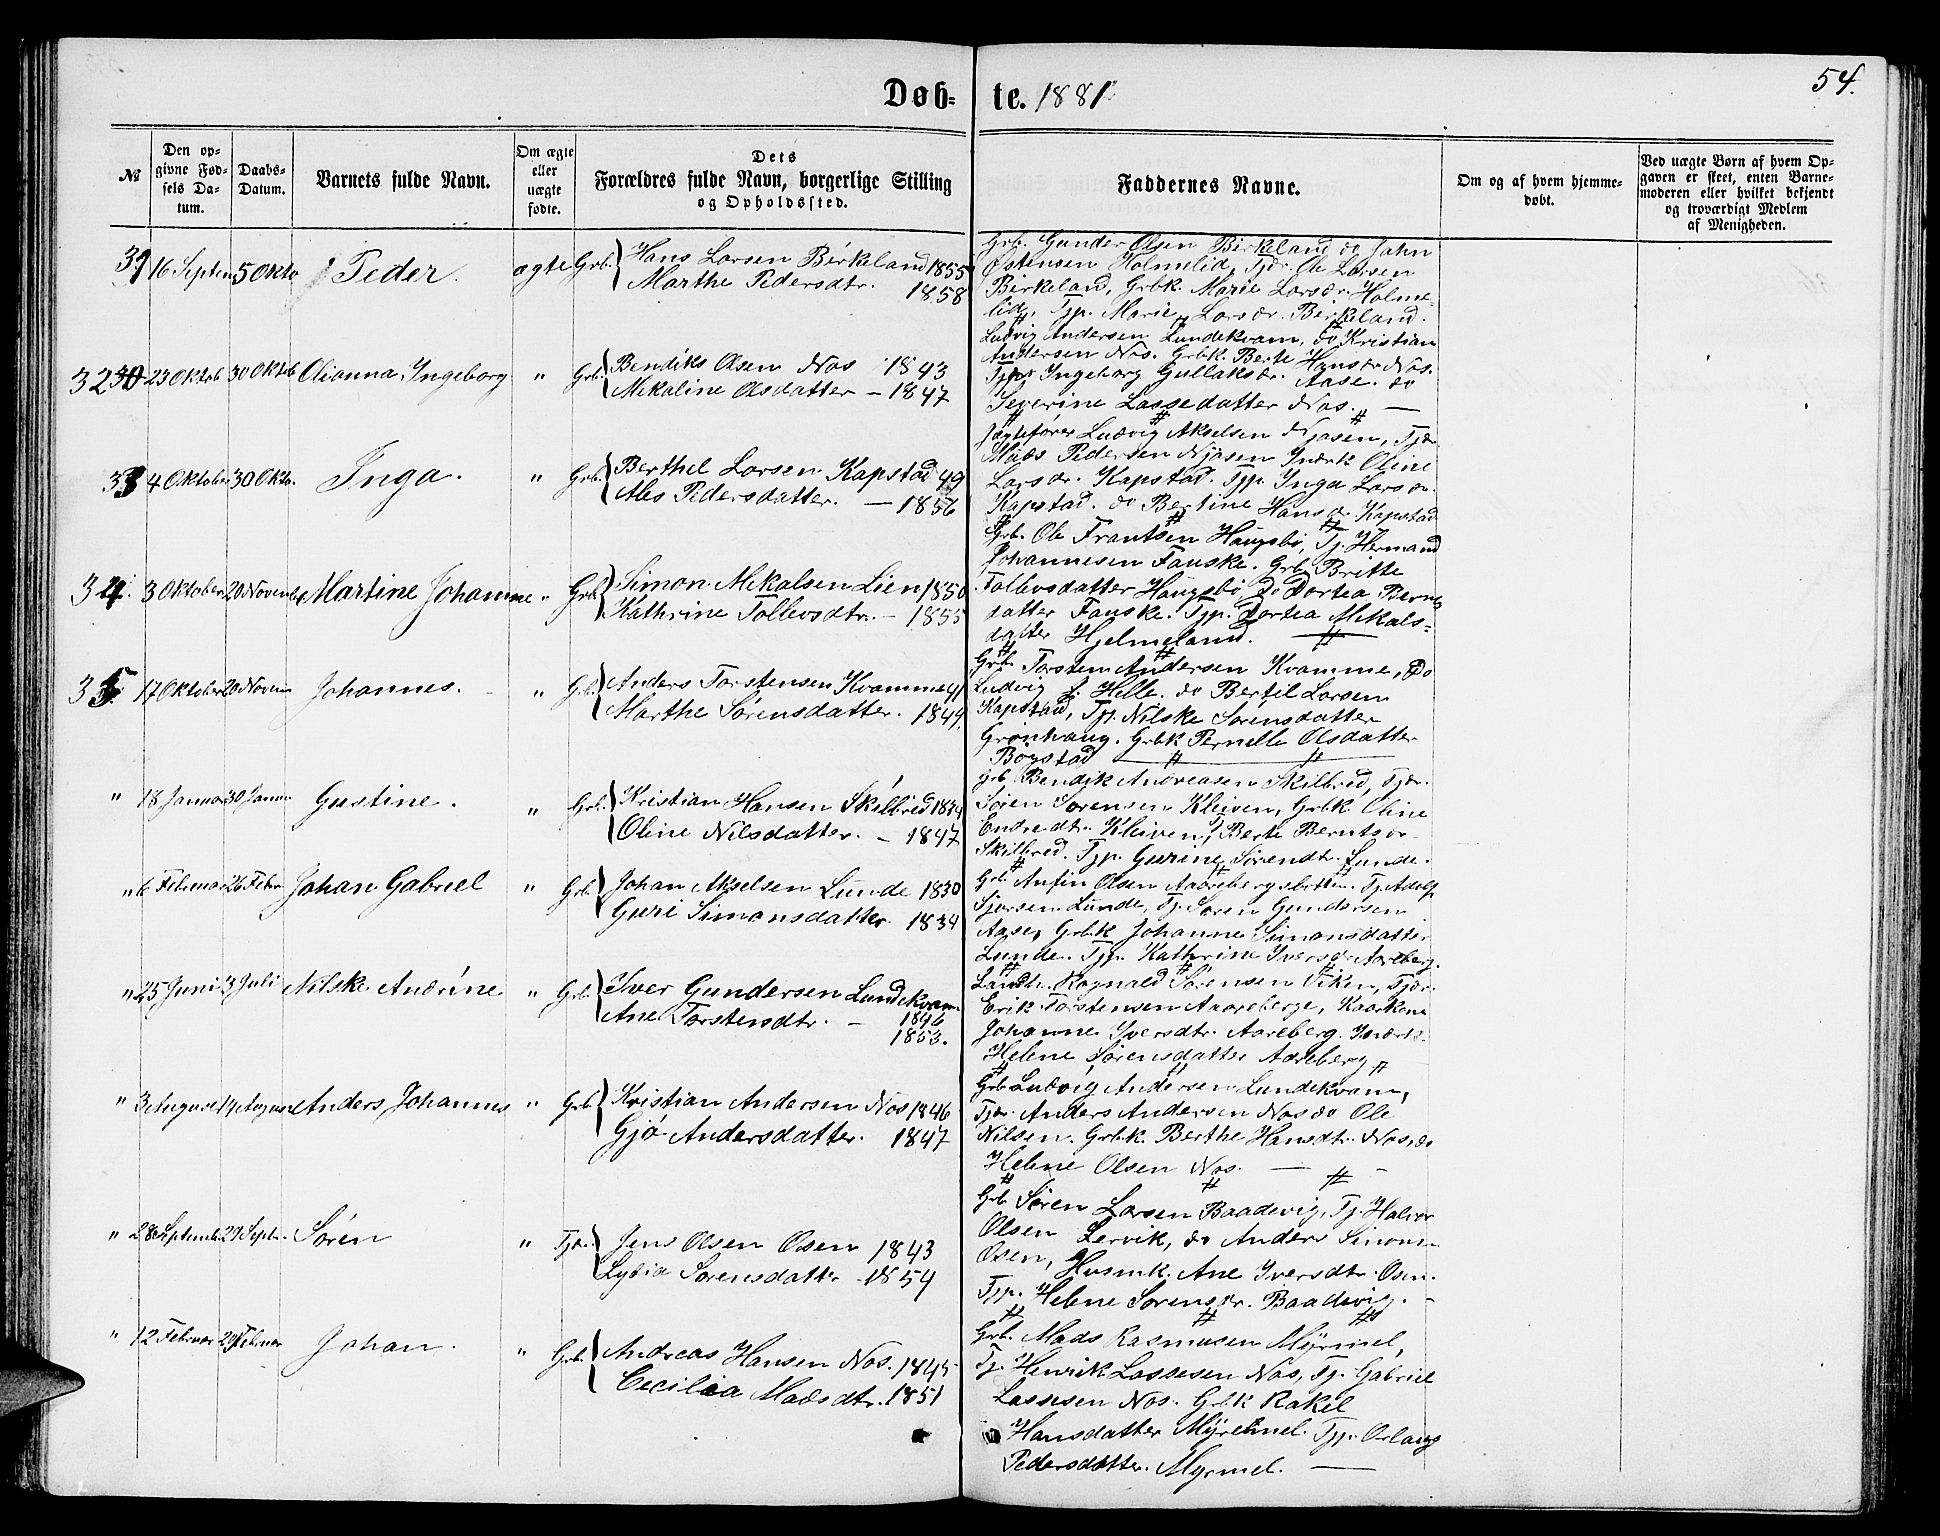 54.
Døb- te. 1881
№
Den opgivne Fødsels Datum.
Daabs-Datum.
Barnets fulde Navn.
Om ægte eller uægte fødte.
Dets Forældres fulde Navn, borgerlige Stilling og Opholdssted.
Faddernes Navne.
Om og af hvem hjemmedøbt.
Ved uægte Børn af hvem Opgaven er skeet, enten Barnemoderen eller hvilket bekjendt og troværdigt Medlem af Menigheden.
31 16 Septem 5 Okto Peder. ægte Grb. Hans Larsen Birkeland 1855
Marthe Pedersdtr. 1858
Grb. Gunder Olsen Birkeland do John
Østensen Holmelid, Tjdr. Ole Larsen
Birkeland, Grbk. Marie Larsdr. Holme-
lid, Tjp. Marie Larsdr. Birkeland.
32 30 23 Oktob 30 Oktb Olianna Ingeborg " Grb. Bendiks Olsen Nos 1843
Mekaline Olsdatter - 1847
Ludvig Andersen Lundekvam, do Kristian
Andersen Nos. Grbk. Berte Hansdr Nos.
Tjp Ingeborg Gullaksdr. Aase. do
Severine Lassedatter Nos. —
33 4 Oktober 30 Okto. Inga. " Grb. Berthel Larsen Kapstad 49
Ales Pedersdatter. — 1856
Jægtefører Ludvig Akselsen Njøsen, Tjdr.
Mads Pedersen Njøsen Indrk Oline
Larsdr. Kapstad. Tjp. Inga Larsdr.
Kapstad. do Bertine Hansdr. Kapstad
34. 3 Oktober 20 November Martine Johanne " Grb. Simon Mekalsen Lien 1850
Kathrine Tollevsdtr. - 1855
Grb. Ole Frantsen Haugsbø, Tj. Hermand
Johannesen Fauske. Grb. Britte
Tollevsdatter Haugsbø, Do Dortea Bernts
datter Fauske. Tjp. Dortea Mekals=
datter Hjelmeland.
35. 17 Oktober 20 Novem Johannes. " Grb. Anders Torstensen Kvamme 41
Marthe Sørensdatter. 1849.
Grb. Torsten Andersen Kvamme, Do
Ludvig J. Helle. do Bertil Larsen
Kapstad, Tjp. Nilske Sørensdatter
Grønhaug. Grbk Pernelle Olsdatter
Bogstad
" 18 Januar 30 Janu Gustine. " Grb. Kristian Hansen Skilbred 1834
Oline Nilsdatter. - 1847
Grb Bendik Andreasen Skilbred, Tjdr.
Søren Sørensen Kleiven, Grbk. Oline
Endredtr. Kleiven, Berte Berntsdr
Skilbred. Tjp. Gurine Sørendtr. Lunde.
" 6 Februar 26 Febr Johan Gabriel " Grb. Johan Akselsen Lunde 1830
Guri Simonsdatter 1834
Grb. Anfin Olsen Aarebergsbotten. Tj. Adolf
Sjursen Lunde, Tj. Søren Gundersen
Aase, Grbk Johanne Simonsdatter
Lunde. Tjp. Kathrine Iversdr Aareberg.
" 25 Juni 3 Juli Nilske Andrine " Grb. Iver Gundersen Lundekvam.
Ane Torstensdtr. - 1846
1853.
Landh. Ragnald Sørensen Viken, Tjdr.
Erik Torstensen Aareberge, Kaarkone
Johanne Iversdtr. Aareberg. Indrk.
Helene Sørensdatter Aareberg
" 3 August 14 August Anders Johannes " Grb. Kristian Andersen Nos 1846
Gjø Andersdatter. 1847
Grb Ludvig Andersen Lundekvam,
Tjdr. Anders Andersen Nos do Ole
Nilsen. Grbk. Berthe Hansdtr. Nos, do
Helene Olsen Nos. —
" 28 Septemb 29 Sept. Søren " Tjdr. Jens Olsen Osen 1843
Lydia Sørensdatter - 1854
Grb Søren Larsen Baadevig, Tj. Halvor
Olsen Lervik, do Anders Simons-
Osen, Husmk. Ane Iversdtr. Osen.
Tjp. Helene Sørensdr. Baadevig.
" 12 Februar 20 Februar Johan. " Grb. Andreas Hansen Nos. 1845
Cecilia Madsdtr. 1851
Grb. Mads Rasmusen Myrmel,
Tj. Henrik Lassesen Nos, Tj. Gabriel
Lassesen Nos. Grbk Rakel
Hansdatter Myrmel. Tjp. Orlaug
Pedersdatter. Myrmel. —